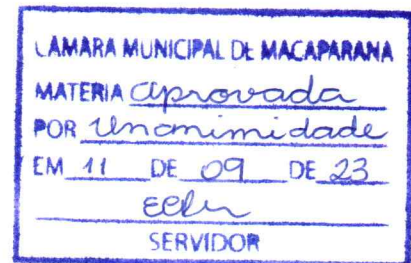 CAMARA MUNICIPAL DE MACAPARANA
MATERIA aprovada
POR Unanimidade
EM 11 DE 09 DE 23
SERVIDOR